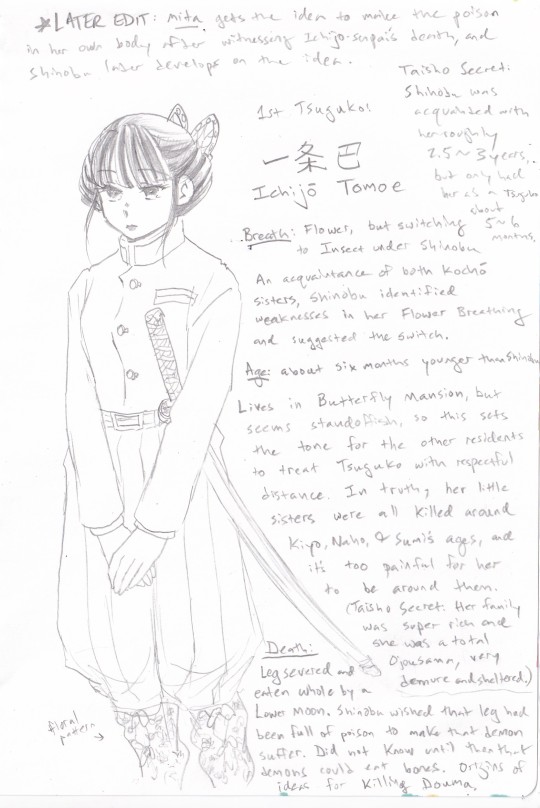 *LATER EDIT: mita gets the idea to make the poison
in her own body after witnessing Ichijo-senpai's death, and
Shinobu later develops on the idea.
Taisho Secret:
Shinobu was
acquainted with
her roughly
2.5~3 years,
but only had
her as a Tsuguko
about
5~6
months.
1st Tsuguko:
一条 巴
Ichijō Tomoe
Breath: Flower, but switching
to Insect under Shinobu
An acquaintance of both Kochō
sisters, Shinobu identified
weaknesses in her Flower Breathing
and suggested the switch.
Age: about six months younger than Shinobu
Lives in Butterfly Mansion, but
seems standoffish, so this sets
the tone for the other residents
to treat Tsuguko with respectful
distance. In truth, her little
sisters were all killed around
Kiyo, Naho, & Sumi's ages, and
it's too painful for her
to be around them.
(Taisho Secret: Her family
was super rich and
she was a total
Ojousama, very
demure and sheltered.)
Death:
Leg severed and
eaten whole by a
Lower Moon. Shinobu wished that leg had
been full of poison to make that demon
suffer. Did not know until then that
demons could eat bones. Origins of
ideas for Killing Douma.
floral
pattern →